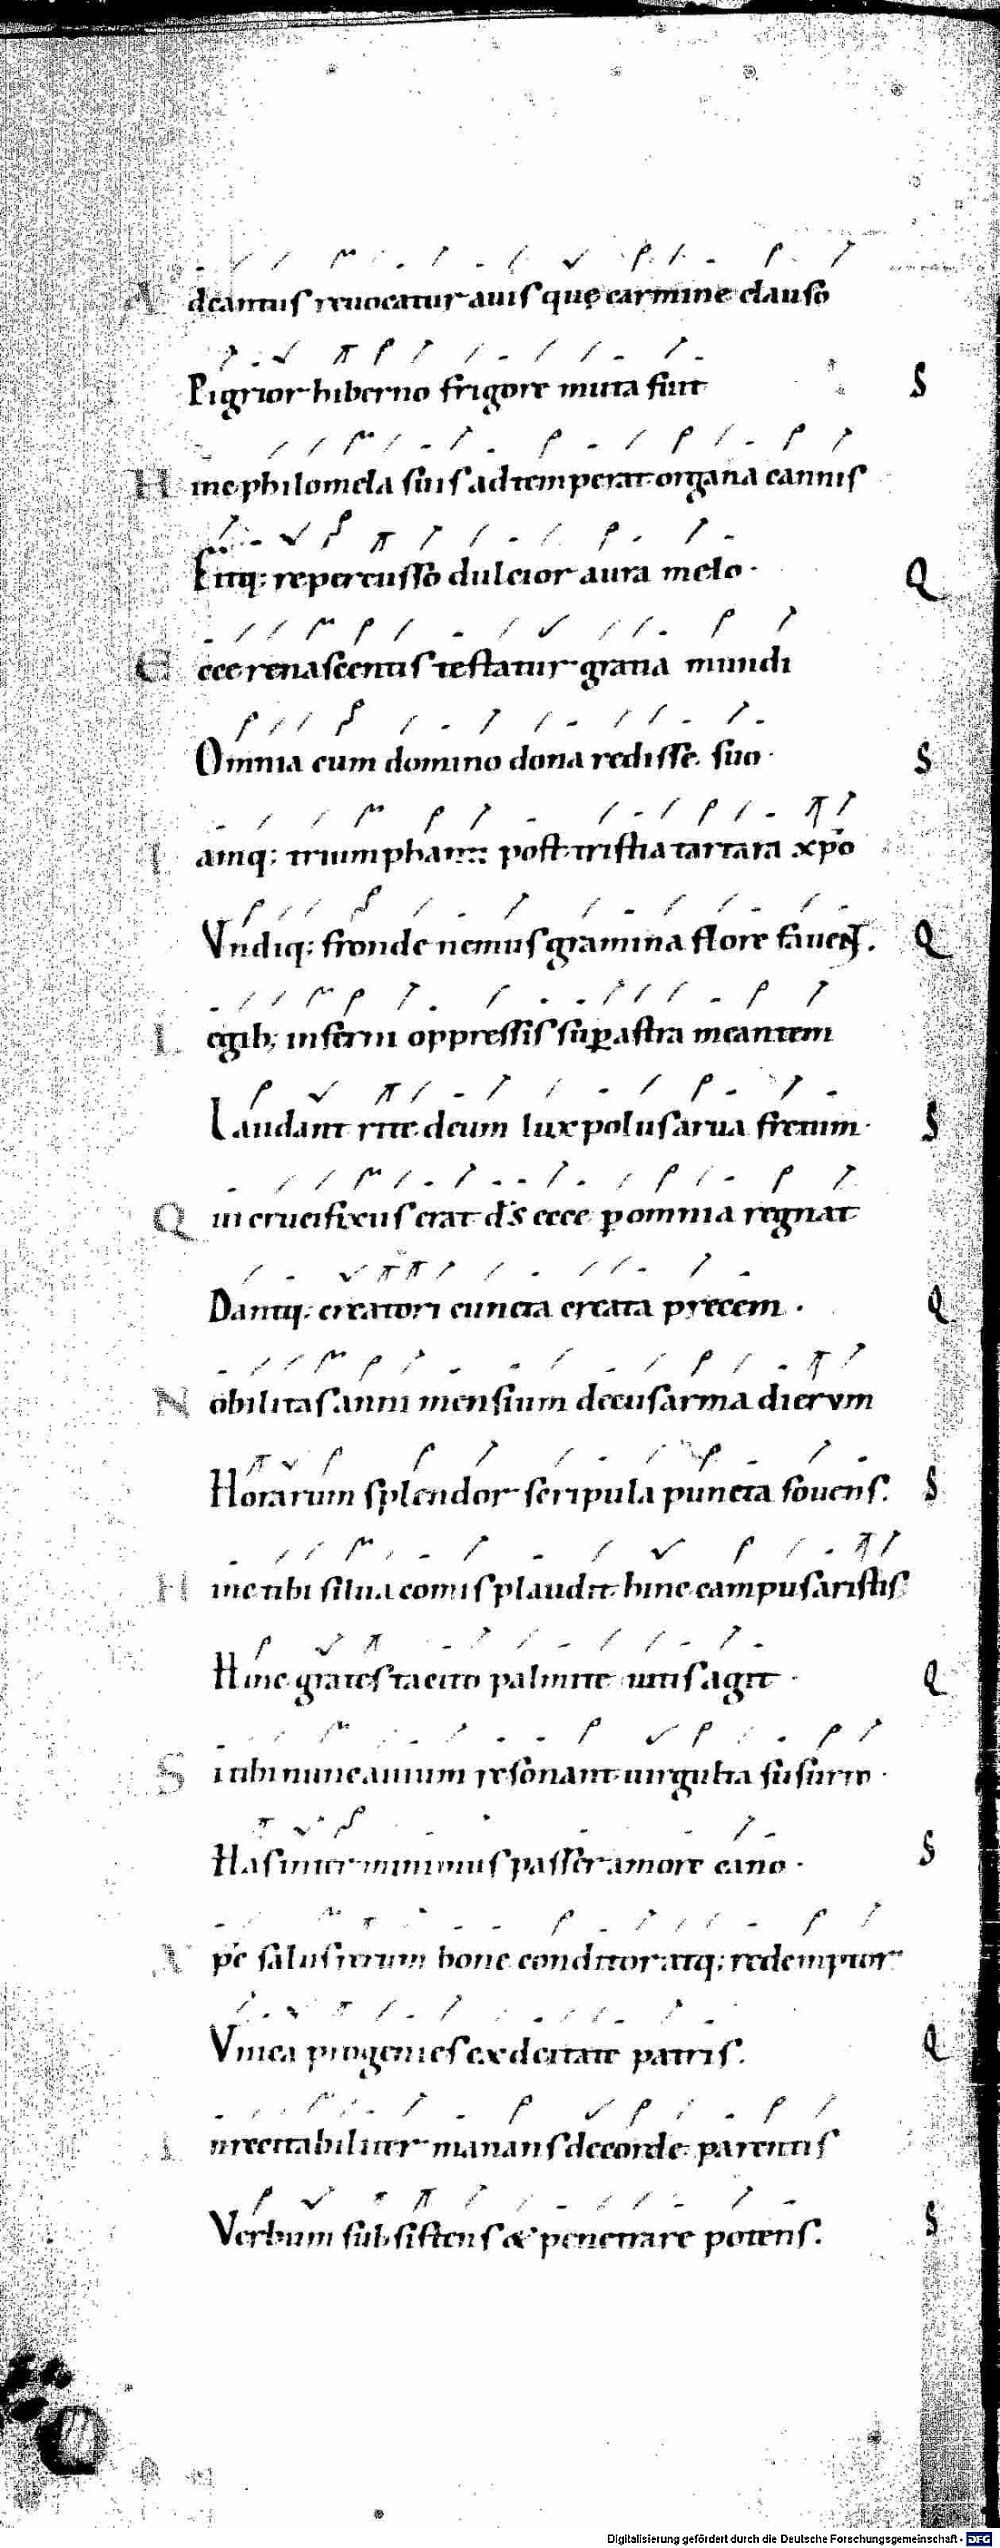 Ad cantus reuocatur auis quę carmine clauso
Pigrior hiberno frigore muta fuit S
Hinc philomela suis adtemperat organa cannis
Fitq; repercusso dulcior aura melo· Q
Ecce renascentis testatur gratia mundi
Omnia cum domino dona redisse suo· S
Iamq; triumphanti post tristia tartara xp̄o
Vndiq; fronde nemus gramina flore fauent. Q
Legib; inferni oppressis sup astra meantem
Laudant rite deum lux polus arua fretum· S
Qui crucifixus erat ds̄ ecce p omnia regnat
Dantq; creatori cuncta creata precem· Q
Nobilitas anni mensium decus arma dierum
Horarum splendor scripula puncta fouens. S
Hinc tibi silua comis plaudit hinc campus aristis
Hinc grates tacito palmite uitis agit· Q
Si tibi nunc auium resonant uirgulta susurro·
Has inter minimus passer amore cano· S
Xp̄e salus rerum bone conditor atq; redemptor
Vnica progenies ex deitate patris. Q
Inrecitabiliter manans de corde parentis
Verbum subsistens & penetrare potens. S
Digitalisierung gefördert durch die Deutsche Forschungsgemeinschaft - DFG